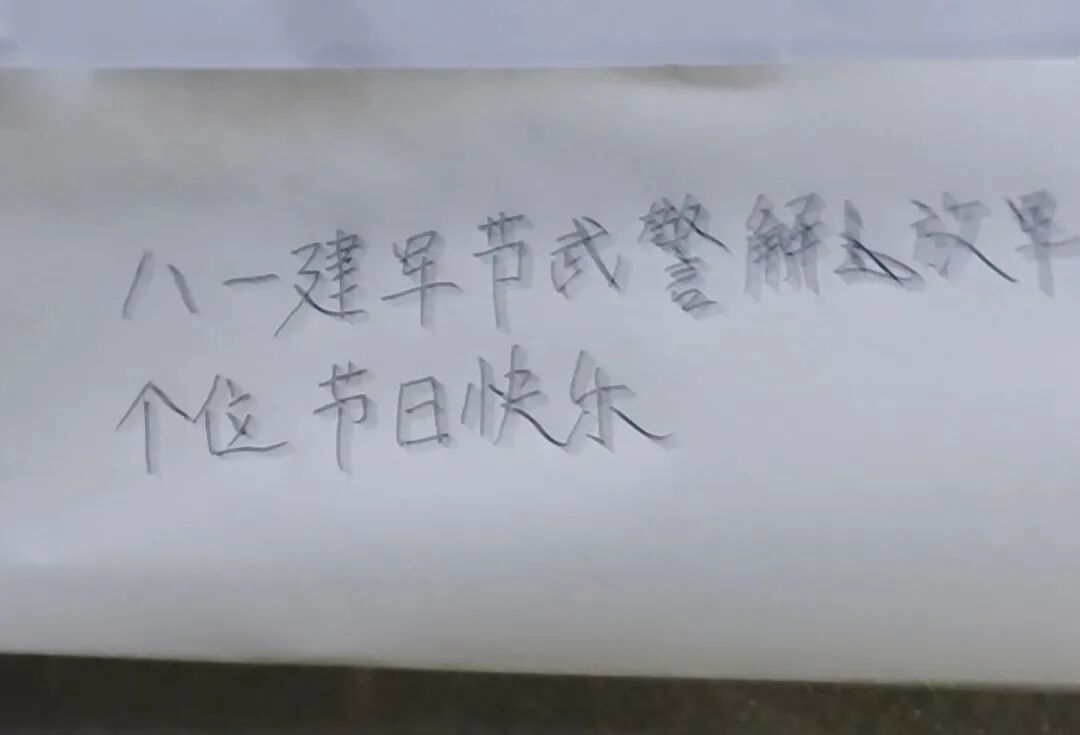 八一建早节武警解放早
个位节日快乐